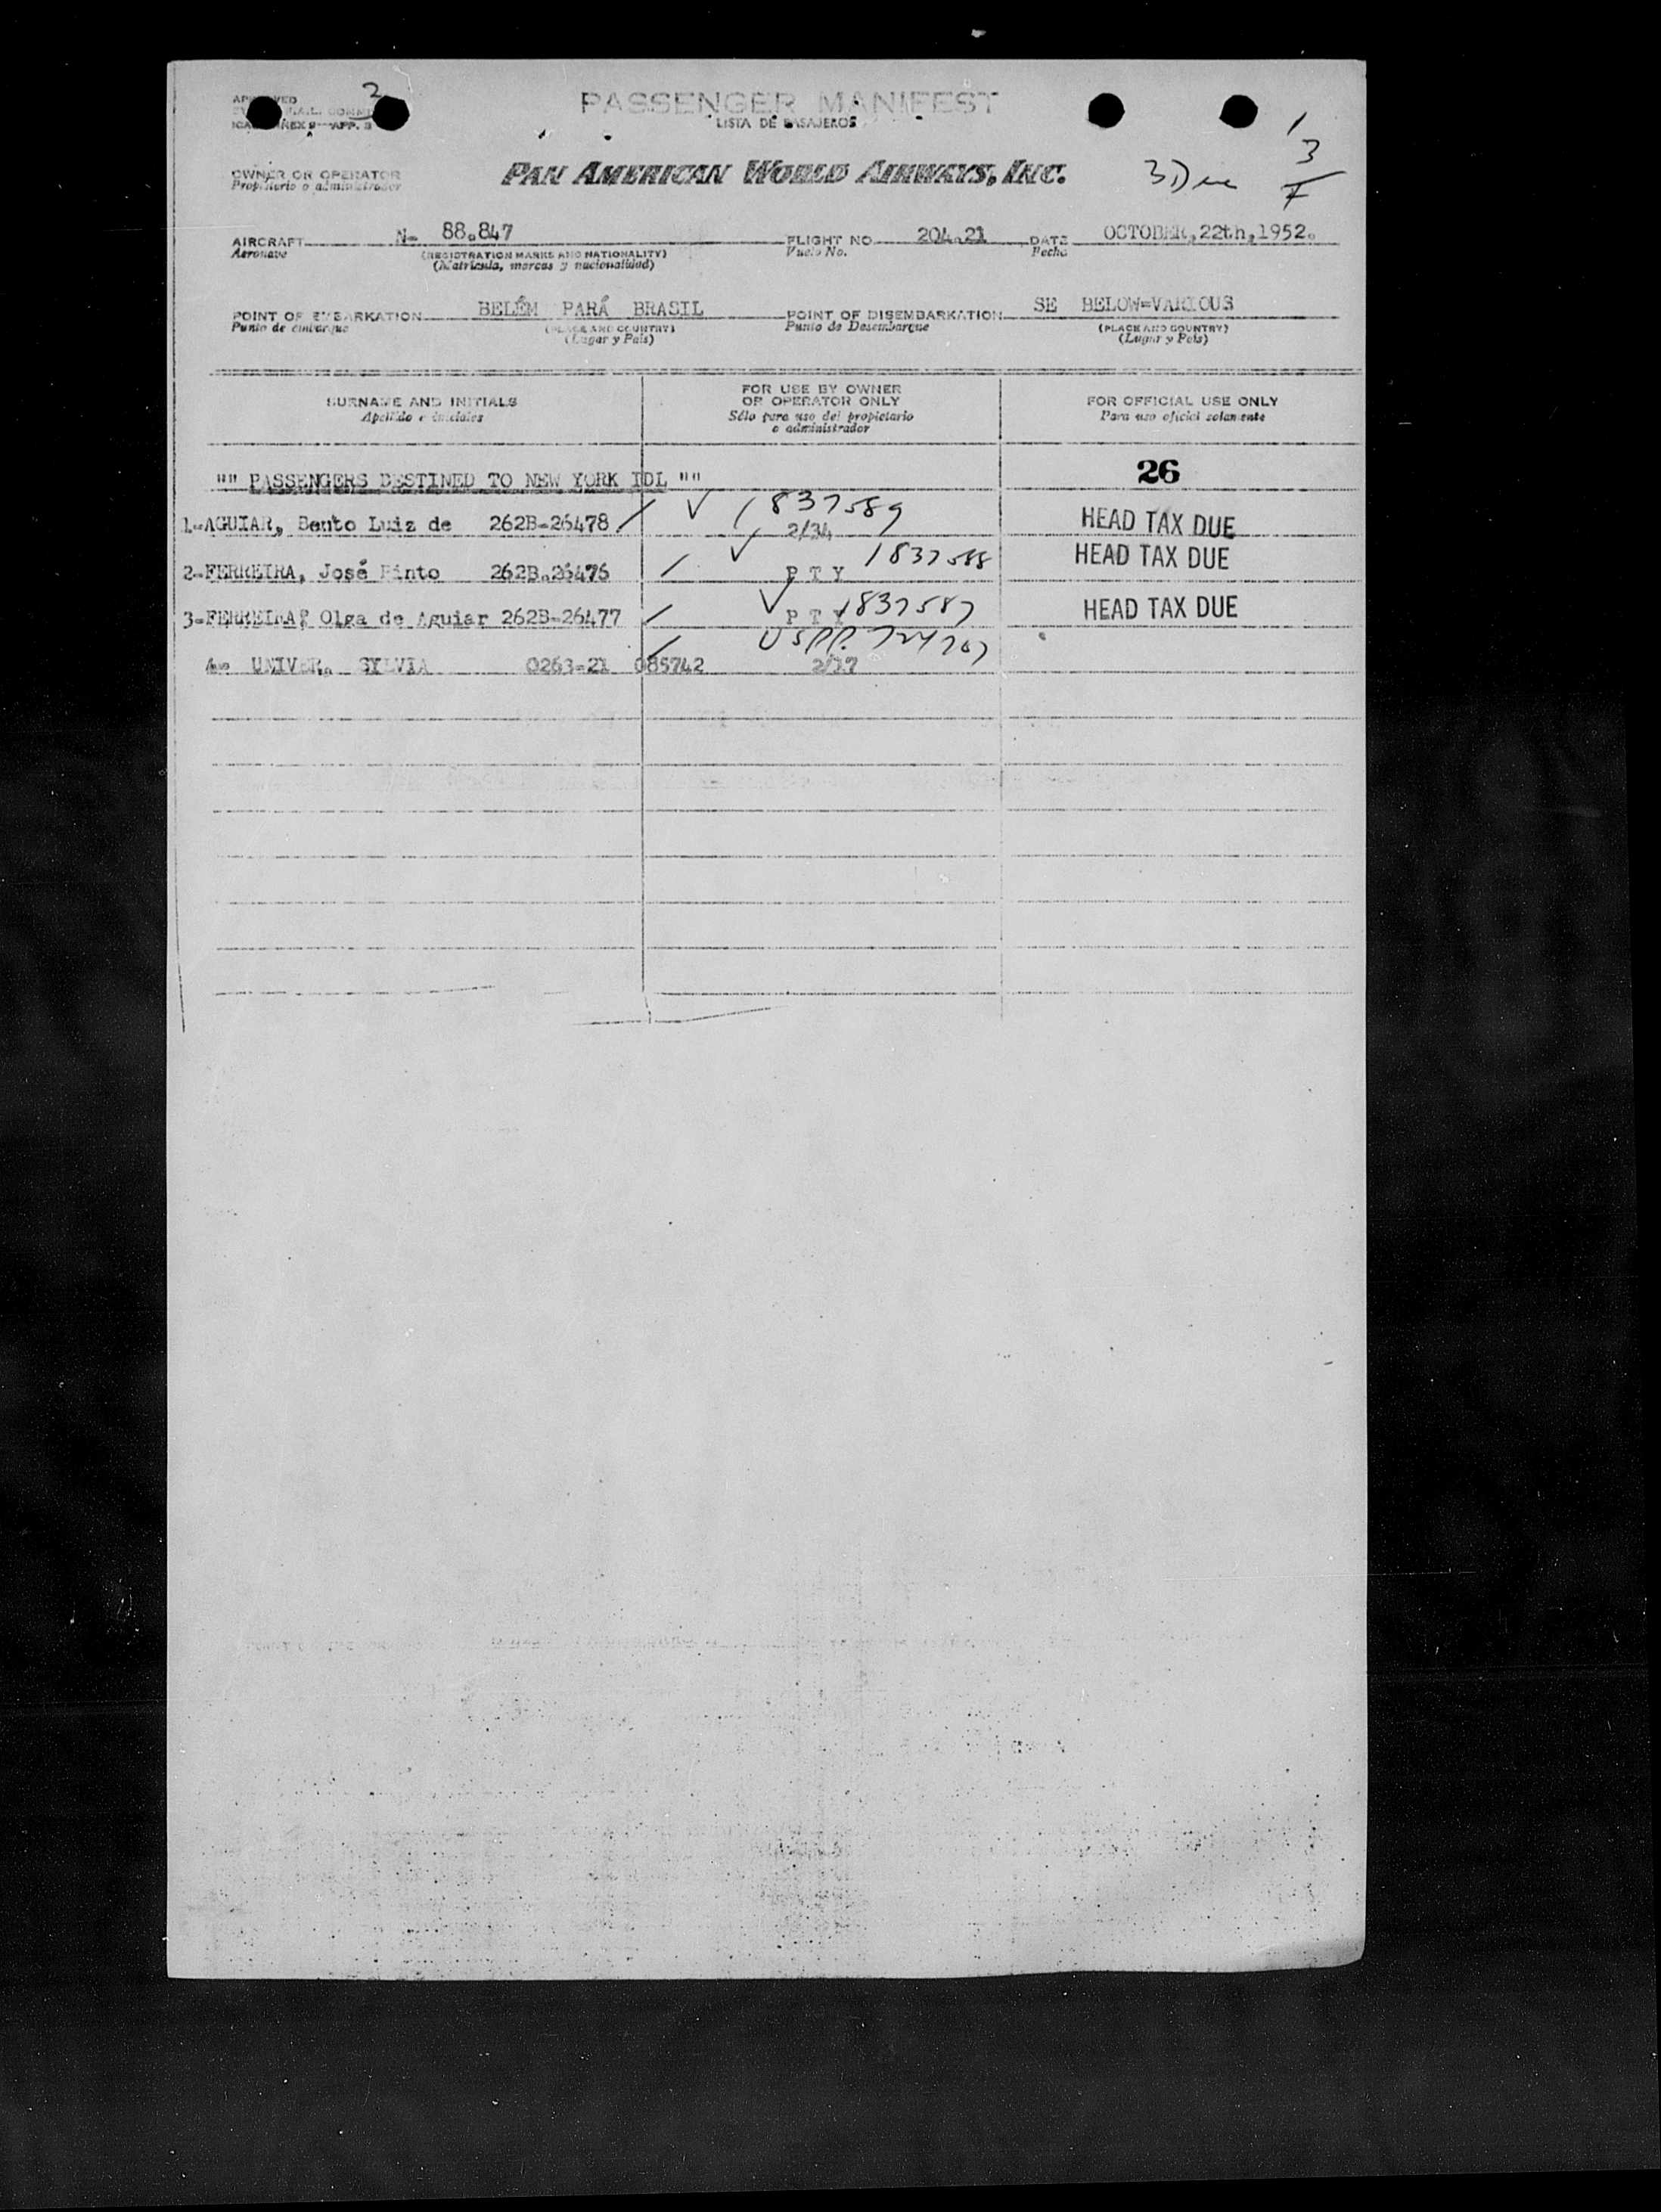 2
PASSENGER MANIFEST
LISTA DE PASAJEROS
ICA ANEX 9 APP. 3
1
3
7
OWNER OR OPERATOR
Propietario o administrador
PAN AMERICAN WORLD AIRWAYS, INC.
3 Due
AIRCRAFT N- 88.847 FLIGHT NO. 204.21 DATE OCTOBER,22th,1952.
Aeronave (REGISTRATION MARKS AND NATIONALITY) Vuelo No. Fecha
(Matricula, marcas y nacionalidad)
POINT OF EMBARKATION BELÉM PARÁ BRASIL POINT OF DISEMBARKATION SE BELOW=VARIOUS
Punto de embarque (PLACE AND COUNTRY) Punto de Desembarque (PLACE AND COUNTRY)
(Lugar y País) (Lugar y País)
SURNAME AND INITIALS FOR USE BY OWNER OR OPERATOR ONLY FOR OFFICIAL USE ONLY
Apellido e iniciales Sólo para uso del propietario o administrador Para uso oficial solamente
"" PASSENGERS DESTINED TO NEW YORK IDL "" 26
1.-AGUIAR, Bento Luiz de 262B-26478 / √ 1837589 2/34 HEAD TAX DUE
2-FERREIRA, José Pinto 262B.26476 / √ 1837588 P T Y HEAD TAX DUE
3-FERREIRA, Olga de Aguiar 262B-26477 / √ 1837587 P T Y HEAD TAX DUE
4- UNIVER, SYLVIA 0263-21 085742 / USPP. 2/17